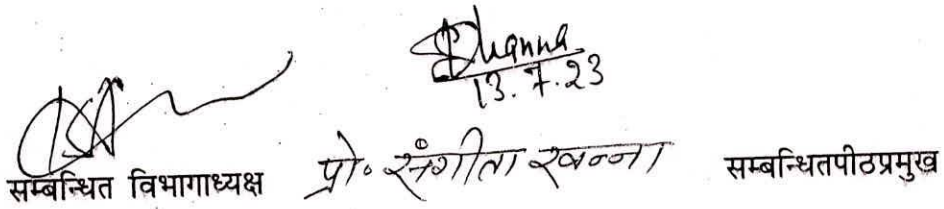 SKhanna
13.7.23
सम्बन्धित विभागाध्यक्ष प्रो॰ संगीता खन्ना सम्बन्धितपीठप्रमुख